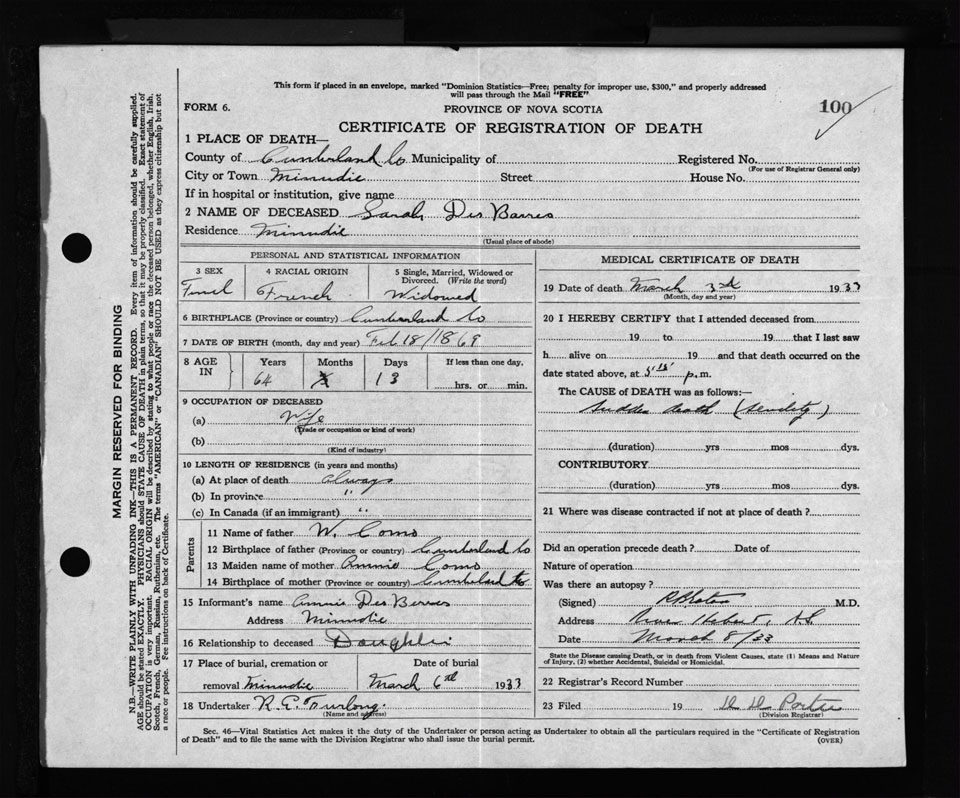 This form if placed in an envelope, marked "Dominion Statistics—Free; penalty for improper use, $300," and properly addressed
will pass through the Mail "FREE"
FORM 6. PROVINCE OF NOVA SCOTIA 100
CERTIFICATE OF REGISTRATION OF DEATH
1 PLACE OF DEATH—
County of Cumberland Co Municipality of Registered No.
(For use of Registrar General only)
City or Town Minudie Street House No.
If in hospital or institution, give name
2 NAME OF DECEASED Sarah Des Barres
Residence Minudie
(Usual place of abode)
PERSONAL AND STATISTICAL INFORMATION
3 SEX 4 RACIAL ORIGIN 5 Single, Married, Widowed or
Divorced. (Write the word)
Femal French Widowed
6 BIRTHPLACE (Province or country) Cumberland Co
7 DATE OF BIRTH (month, day and year) Feb 18/1869
8 AGE IN Years Months Days If less than one day,
64 13 hrs. or min.
9 OCCUPATION OF DECEASED
(a) Wife
(Trade or occupation or kind of work)
(b)
(Kind of industry)
10 LENGTH OF RESIDENCE (in years and months)
(a) At place of death always
(b) In province "
(c) In Canada (if an immigrant) "
Parents
11 Name of father W. Coms
12 Birthplace of father (Province or country) Cumberland Co
13 Maiden name of mother Annie Coms
14 Birthplace of mother (Province or country) Cumberland Co
15 Informant's name Annie Des Berres
Address Minudie
16 Relationship to deceased Daughter
17 Place of burial, cremation or Date of burial
removal Minudie March 6th 1933
18 Undertaker R. E. Furlong.
(Name and address)
MEDICAL CERTIFICATE OF DEATH
19 Date of death March 3rd 1933
(Month, day and year)
20 I HEREBY CERTIFY that I attended deceased from
19 to 19 that I last saw
h alive on 19 and that death occurred on the
date stated above, at p.m.
The CAUSE OF DEATH was as follows:—
Sudden death (Senility)
(duration) yrs mos dys.
CONTRIBUTORY
(duration) yrs. mos. dys.
21 Where was disease contracted if not at place of death?
Did an operation precede death? Date of
Nature of operation
Was there an autopsy?
(Signed) M.D.
Address River Hebert, N.S.
Date March 8/33
State the Disease causing Death, or in death from Violent Causes, state (1) Means and Nature
of Injury, (2) whether Accidental, Suicidal or Homicidal.
22 Registrar's Record Number
23 Filed 19 Porter
(Division Registrar)
Sec. 46—Vital Statistics Act makes it the duty of the Undertaker or person acting as Undertaker to obtain all the particulars required in the "Certificate of Registration
of Death" and to file the same with the Division Registrar who shall issue the burial permit. (OVER)
MARGIN RESERVED FOR BINDING
N.B.—WRITE PLAINLY WITH UNFADING INK—THIS IS A PERMANENT RECORD. Every item of information should be carefully supplied.
AGE should be stated EXACTLY. PHYSICIANS should STATE CAUSE OF DEATH in plain terms, so that it may be properly classified. Exact statement of
OCCUPATION is very important. RACIAL ORIGIN will be described by stating to what people or race the deceased person belonged, whether English, Irish,
Scotch, French, German, Russian, Ruthenian, etc. The terms "AMERICAN" or "CANADIAN" SHOULD NOT BE USED as they express citizenship but not
a race or people. Fee instructions on back of Certificate.